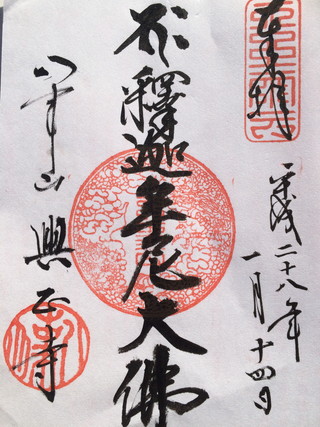 奉拝
平成二十八年
一月十四日
釋迦牟尼大佛
八事山 興正寺